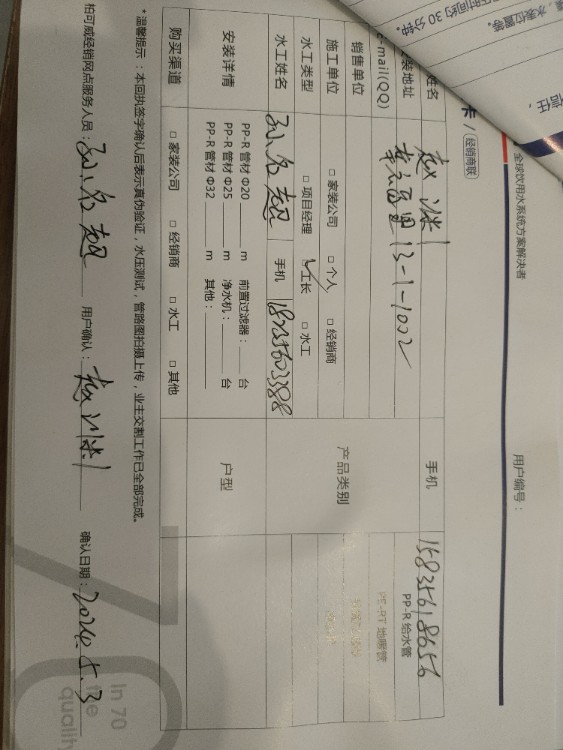 时间约 30 分钟。
水表位置等。
信任，
卡 / 经销商联
全球饮用水系统方案解决者
用户编号：
姓名
手机 15835618656
装地址 13-1-1002
e-mail(QQ)
产品类别 PP-R 给水管
PE-RT 地暖管
销售单位
施工单位 □ 家装公司 □ 个人 □ 经销商
水工类型 □ 项目经理 ✓工长 □ 水工
水工姓名 孙名超 手机
安装详情 PP-R 管材 Φ20 ____ m 前置过滤器：____ 台
PP-R 管材 Φ25 ____ m 净水机：____ 台
PP-R 管材 Φ32 ____ m 其他：____
户型
购买渠道 □ 家装公司 □ 经销商 □ 水工 □ 其他
* 温馨提示：本回执签字确认后表示真伪验证，水压测试，管路图拍摄上传，业主交割工作已全部完成。
柏可威经销网点服务人员：孙名超 用户确认： 确认日期：2024.5.3
In 70
the
quality